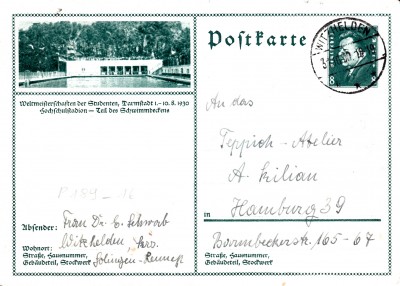 Postkarte
WITZHELDEN
8
Weltmeisterschaften der Studenten, Darmstadt 1.–10. 8. 1930
Hochschulstadion — Teil des Schwimmbeckens
An das
Teppich-Atelier
A. Kilian
in Hamburg 39
Bormbeckerstr. 165-67
Straße, Hausnummer,
Gebäudeteil, Stockwerk
P 189-12
Absender: Frau Dr. E. Schwab
Wohnort: Witzhelden,
Straße, Hausnummer,
Gebäudeteil, Stockwerk
Solingen-